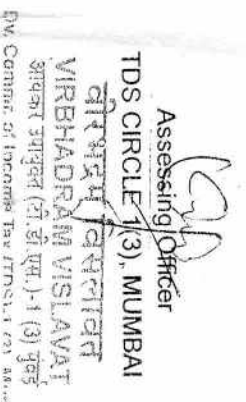 Assessing Officer
TDS CIRCLE 1(3), MUMBAI
वीरभद्रम वसलावत
VIRBHADRAM VISLAVAT
आयकर उपायुक्त (टी.डी.एस.)-1 (3) मुंबई
Dy. Commr. of Income Tax (TDS)-1 (3)